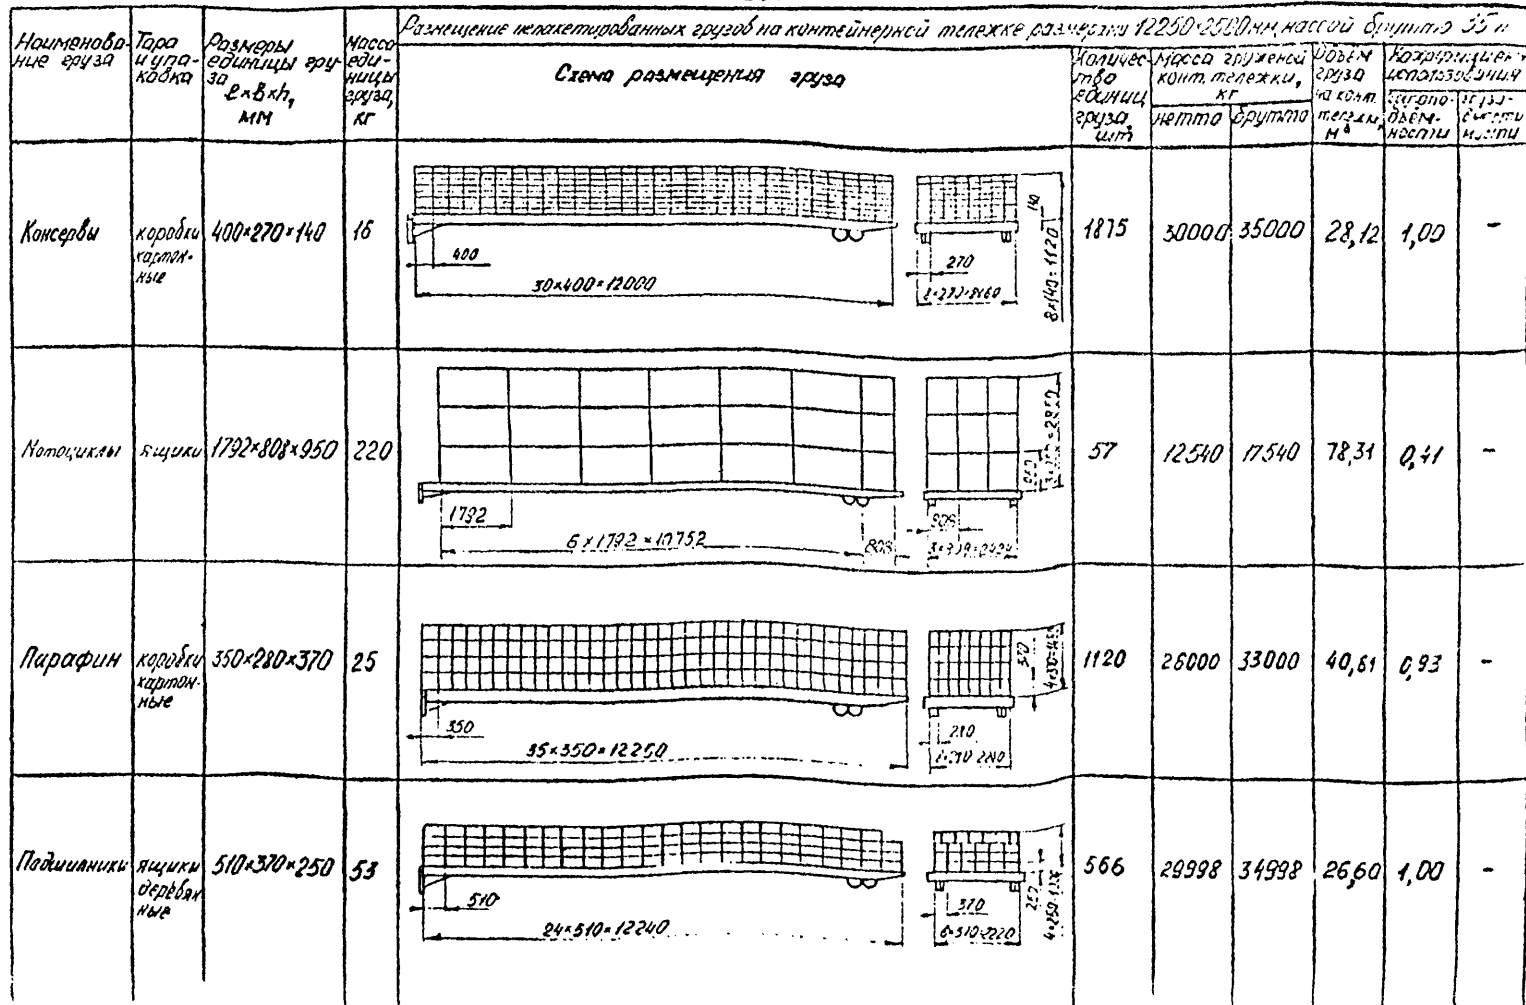 Размещение непакетированных грузов на контейнерной тележке размерами 12250×2500 мм, массой брутто 35 т
Наименова-
ние груза
Тара
и упа-
ковка
Размеры
единицы гру-
за
l×b×h,
мм
Масса
еди-
ницы
груза,
кг
Схема размещения груза
Количес-
тво
единиц
груза,
шт
Масса груженой
конт. тележки,
кг
нетто
брутто
Объем
груза
на конт.
тележке,
м³
Коэффициент
использования
грузо-
подъем-
ности
Консервы
коробки
картон-
ные
400×270×140
16
400
30×400=12000
270
8×270=2160
140
8×140=1120
1875
30000
35000
28,12
1,00
-
Мотоциклы
ящики
1792×808×950
220
1792
6×1792=10752
808
808
3×808=2424
950
3×950=2850
57
12540
17540
78,31
0,41
-
Парафин
коробки
картон-
ные
350×280×370
25
350
35×350=12250
280
370
1120
26000
33000
40,61
0,93
-
Подшипники
ящики
деревян
ные
510×370×250
53
510
24×510=12240
370
250
566
29998
34998
26,60
1,00
-